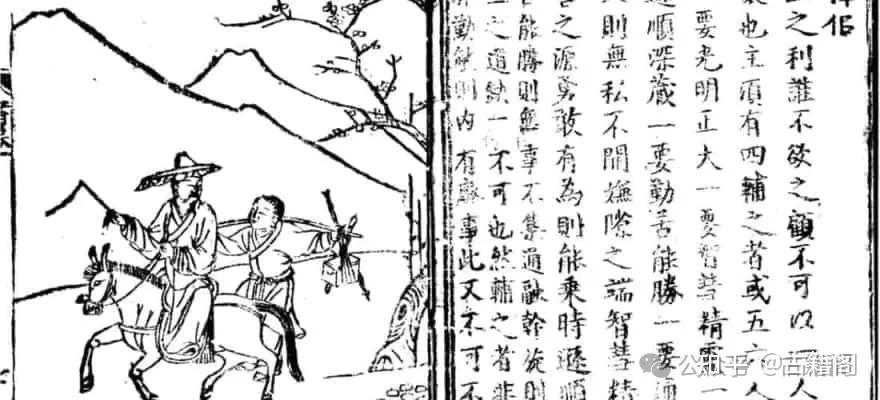 侣
之利誰不欲之顧不可以一人
也主須有四輔之者或五六人
要光明正大一要智慧精靈一
遜順深藏一要勤苦能勝一要通
則無私不開嫌隙之端智慧精
之源勇敢有為則能乘時遜順
能勝則無事不集通融幹旋則
之道缺一不可也然輔之者非
勤能則內有廢事此又不可不
知乎 @古籍阁